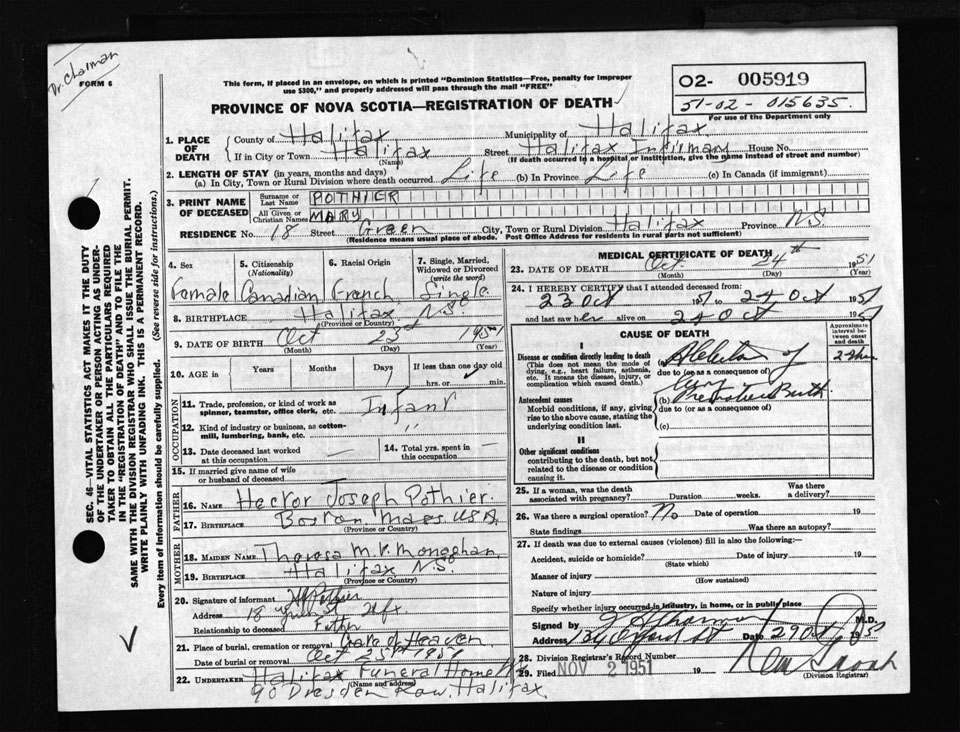 Dr. Chalman
FORM 6
This form, if placed in an envelope, on which is printed "Dominion Statistics—Free, penalty for improper
use $300," and properly addressed will pass through the mail "FREE"
PROVINCE OF NOVA SCOTIA—REGISTRATION OF DEATH
O2- 005919
51-02-015635.
For use of the Department only
1. PLACE OF DEATH { County of Halifax Municipality of Halifax
If in City or Town Halifax (Name) Street Halifax Infirmary House No.
(If death occurred in a hospital or institution, give the name instead of street and number)
2. LENGTH OF STAY (in years, months and days)
(a) In City, Town or Rural Division where death occurred Life (b) In Province Life (c) In Canada (if immigrant)
3. PRINT NAME OF DECEASED { Surname or Last Name POTHIER
All Given or Christian Names MARY
RESIDENCE No. 18 Street Green City, Town or Rural Division Halifax Province N.S.
(Residence means usual place of abode. Post Office Address for residents in rural parts not sufficient)
4. Sex Female
5. Citizenship (Nationality) Canadian
6. Racial Origin French
7. Single, Married, Widowed or Divorced (write the word) Single
8. BIRTHPLACE Halifax N.S.
(Province or Country)
9. DATE OF BIRTH Oct 23rd 1951
(Month) (Day) (Year)
10. AGE in { Years Months Days 1 If less than one day old
hrs. or min.
OCCUPATION
11. Trade, profession, or kind of work as spinner, teamster, office clerk, etc. Infant
12. Kind of industry or business, as cotton-mill, lumbering, bank, etc. "
13. Date deceased last worked at this occupation —
14. Total yrs. spent in this occupation —
15. If married give name of wife or husband of deceased
FATHER
16. Name Hector Joseph Pothier.
17. Birthplace Boston Mass. USA.
(Province or Country)
MOTHER
18. Maiden Name Theresa M.V. Monaghan
19. Birthplace Halifax N.S.
(Province or Country)
20. Signature of informant H Pothier
Address 18 Green St Hfx.
Relationship to deceased Father
21. Place of burial, cremation or removal Gate of Heaven
Date of burial or removal Oct 25th 1951
22. Undertaker Halifax Funeral Home
(Name and address)
90 Dresden Row, Halifax
MEDICAL CERTIFICATE OF DEATH
23. DATE OF DEATH Oct 24th 1951
(Month) (Day) (Year)
24. I HEREBY CERTIFY that I attended deceased from:
23 Oct 1951 to 24 Oct 1951
and last saw her alive on 24 Oct 1951
CAUSE OF DEATH
Approximate interval between onset and death
I
Disease or condition directly leading to death
(This does not mean the mode of dying, e.g., heart failure, asthenia, etc. It means the disease, injury, or complication which caused death.)
of
due to (or as a consequence of)
Antecedent causes
Morbid conditions, if any, giving rise to the above cause, stating the underlying condition last.
(b) Premature Birth
due to (or as a consequence of)
(c)
II
Other significant conditions
contributing to the death, but not related to the disease or condition causing it.
25. If a woman, was the death associated with pregnancy? Duration weeks. Was there a delivery?
26. Was there a surgical operation? No Date of operation 19
State findings Was there an autopsy?
27. If death was due to external causes (violence) fill in also the following:—
Accident, suicide or homicide? Date of injury 19
(State which)
Manner of injury
(How sustained)
Nature of injury
Specify whether injury occurred in industry, in home, or in public place
Signed by M.D.
Address 134 Oxford St Date 29 Oct 1951
28. Division Registrar's Record Number
29. Filed NOV 2 1951 19
(Division Registrar)
SEC. 46—VITAL STATISTICS ACT MAKES IT THE DUTY
OF THE UNDERTAKER OR PERSON ACTING AS UNDER-
TAKER TO OBTAIN ALL THE PARTICULARS REQUIRED
IN THE "REGISTRATION OF DEATH" AND TO FILE THE
SAME WITH THE DIVISION REGISTRAR WHO SHALL ISSUE THE BURIAL PERMIT.
WRITE PLAINLY WITH UNFADING INK. THIS IS A PERMANENT RECORD.
Every item of information should be carefully supplied. (See reverse side for instructions.)